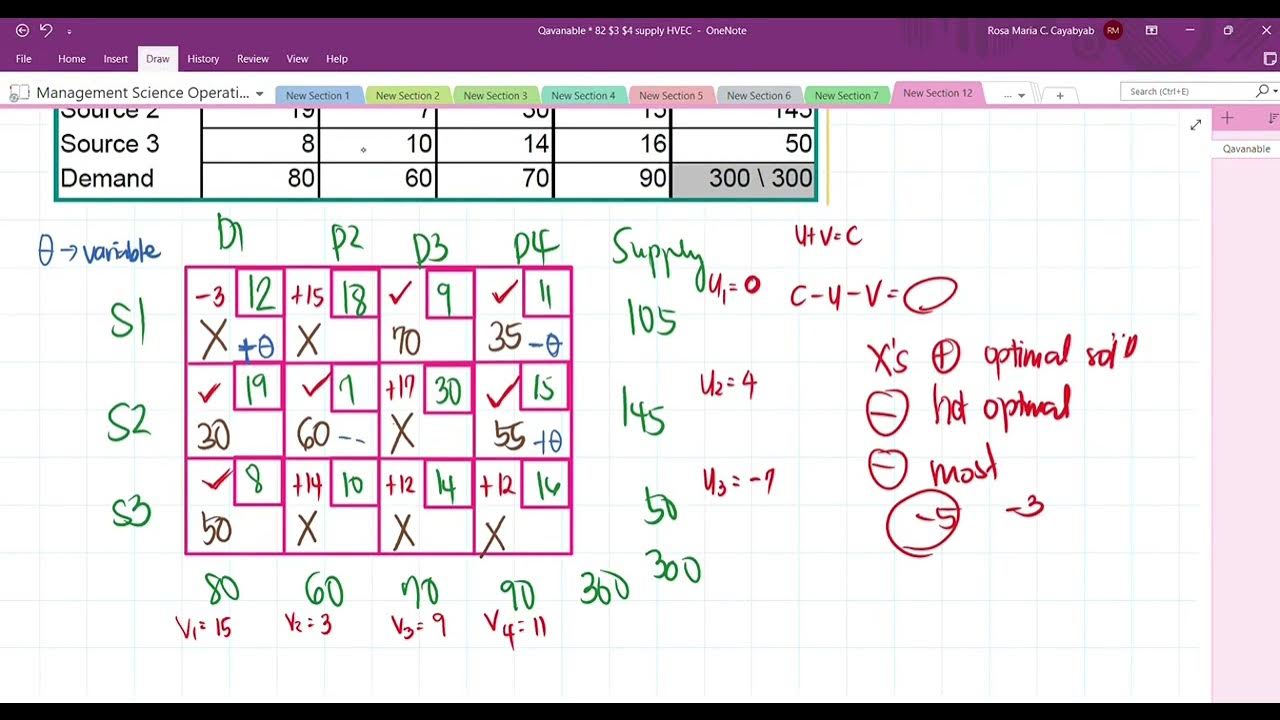 Qavanable * 82 $3 $4 supply HVEC - OneNote
Rosa Maria C. Cayabyab RM
File Home Insert Draw History Review View Help
Management Science Operati... New Section 1 New Section 2 New Section 3 New Section 4 New Section 5 New Section 6 New Section 7 New Section 12 ... + Search (Ctrl+E)
Qavanable
Source 2 19 7 30 15 145
Source 3 8 10 14 16 50
Demand 80 60 70 90 300 \ 300
θ → variable D1 D2 D3 D4 Supply
U+V=C
C-U-V=
S1 -3 12 +15 18 ✓ 9 ✓ 11 105 U1 = 0
X +θ X 70 35 -θ
X's + optimal sol'n
S2 ✓ 19 ✓ 7 +17 30 ✓ 15 145 U2 = 4
30 60 -- X 55 +θ
- not optimal
S3 ✓ 8 +14 10 +12 14 +12 16 50 U3 = -7
50 X X X
- most
-5 -3
80 60 70 90 300 300
V1 = 15 V2 = 3 V3 = 9 V4 = 11